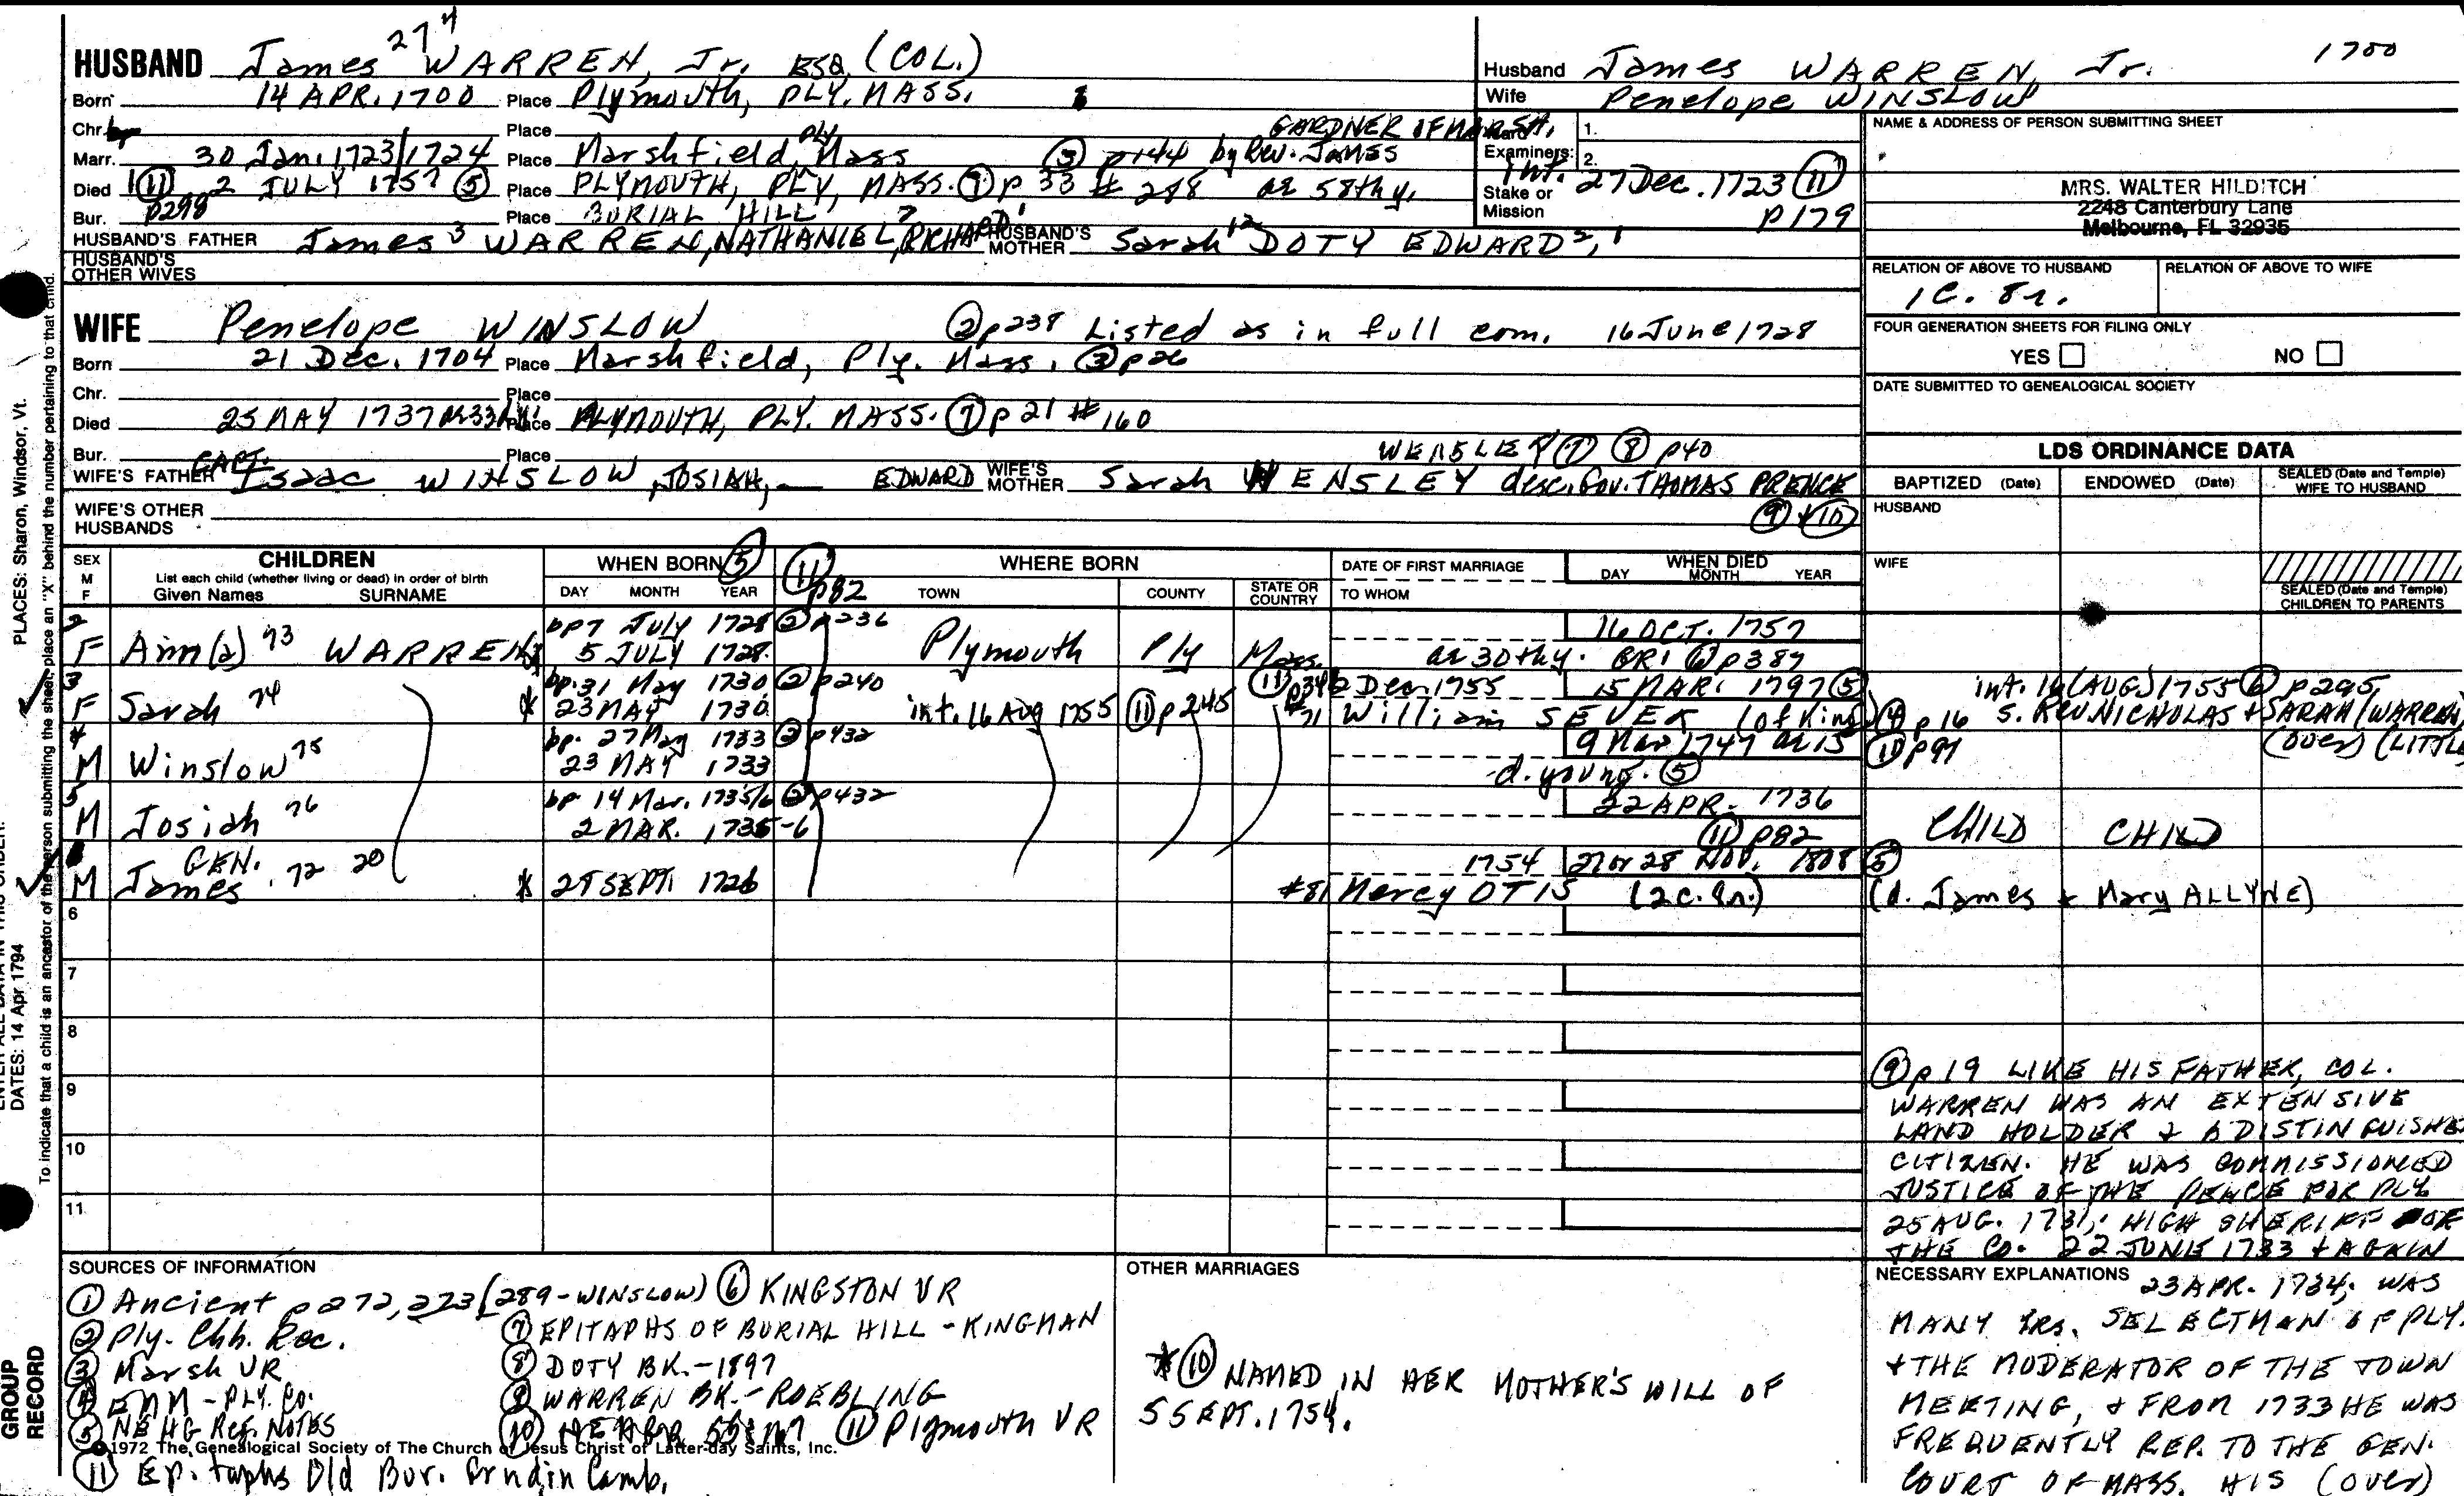 HUSBAND James 27 4 WARREN, Jr. ESQ. (COL.)
Born 14 APR. 1700 Place Plymouth, PLY. MASS.
Chr. Place
Marr. 30 Jan. 1723/1724 Place Marshfield, Ply Mass ③ p144 by Rev. JAMES GARDNER OF MARSH.
Died ⑪ 2 JULY 1757 ⑤ Place PLYMOUTH, PLY, MASS. ⑦ p 33 # 288 ae 58thy.
Bur. p298 Place BURIAL HILL
HUSBAND'S FATHER James 3 WARREN, NATHANIEL 2, RICHARD 1 HUSBAND'S MOTHER Sarah DOTY EDWARD 2, 1
HUSBAND'S OTHER WIVES
Husband James WARREN, Jr. 1700
Wife Penelope WINSLOW
Ward 1.
Examiners: 2.
Stake or Mission
Int. 27 Dec. 1723 ⑪
p179
NAME & ADDRESS OF PERSON SUBMITTING SHEET
MRS. WALTER HILDITCH
2248 Canterbury Lane
Melbourne, FL 32935
RELATION OF ABOVE TO HUSBAND RELATION OF ABOVE TO WIFE
1C. 8r.
FOUR GENERATION SHEETS FOR FILING ONLY
YES NO
DATE SUBMITTED TO GENEALOGICAL SOCIETY
WIFE Penelope WINSLOW ② p238 Listed as in full com. 16 June 1728
Born 21 Dec. 1704 Place Marshfield, Ply. Mass. ③ p26
Chr. Place
Died 25 MAY 1737 ae 33 Place PLYMOUTH, PLY. MASS. ⑦ p 21 # 160
Bur. Place WENSLEY ⑦ ⑧ p40
WIFE'S FATHER CAPT. Isaac WINSLOW, JOSIAH, EDWARD WIFE'S MOTHER Sarah WENSLEY desc. Gov. THOMAS PRENCE
WIFE'S OTHER HUSBANDS ⑨ + ⑩
LDS ORDINANCE DATA
BAPTIZED (Date) ENDOWED (Date) SEALED (Date and Temple) WIFE TO HUSBAND
HUSBAND
WIFE
SEALED (Date and Temple) CHILDREN TO PARENTS
SEX M F CHILDREN List each child (whether living or dead) in order of birth Given Names SURNAME
WHEN BORN ⑤ DAY MONTH YEAR
⑪ p82 WHERE BORN TOWN COUNTY STATE OR COUNTRY
DATE OF FIRST MARRIAGE TO WHOM
WHEN DIED DAY MONTH YEAR
2 bp 7 July 1728 ② p236 16 OCT. 1757
F Ann(a) 73 WARREN 5 JULY 1728. Plymouth Ply Mass. ae 30thy. GRI ⑥ p387
3 bp. 31 May 1730 ② p240 ⑪ 2 Dec. 1755 15 MAR. 1797 ⑤ int. 16 (AUG) 1755 ⑥ p295
F Sarah 74 * 23 MAY 1730 int. 16 Aug 1755 ⑪ p245 William SEVER (of King) ④ p 16 S. REV. NICHOLAS + SARAH (WARREN)
4 bp. 27 May 1733 ② p432 9 Mar 1747 ae 15 p97 (over) (LITTLE
M Winslow 75 23 MAY 1733 d. young. ⑤
5 bp 14 Mar. 1735/6 ② p432 22 APR. 1736
M Josiah 76 2 MAR. 1735-6 ⑪ p82 CHILD CHILD
GEN. 1754 27 or 28 NOV. 1808 ⑤
M James 72 20 * 28 SEPT. 1726 #81 Mercy OTIS (2c. 9r.) (d. James + Mary ALLYNE)
6
7
8
9
10
11
⑨ p 19 LIKE HIS FATHER, COL.
WARREN WAS AN EXTENSIVE
LAND HOLDER & A DISTINGUISHED
CITIZEN. HE WAS COMMISSIONED
JUSTICE OF THE PEACE FOR PLY
25 AUG. 1731; HIGH SHERIFF FOR
THE CO. 22 JUNE 1733 + AGAIN
NECESSARY EXPLANATIONS 23 APR. 1734; WAS
MANY YRS. SELECTMAN OF PLY.
+ THE MODERATOR OF THE TOWN
MEETING, & FROM 1733 HE WAS
FREQUENTLY REP. TO THE GEN.
COURT OF MASS. HIS (over)
SOURCES OF INFORMATION
① Ancient p 272, 273 (289 - WINSLOW) ⑥ KINGSTON VR
② Ply. Chh. Rec. ⑦ EPITAPHS OF BURIAL HILL - KINGMAN
③ Marsh VR ⑧ DOTY BK. - 1897
④ EMM - PLY. CO. ⑨ WARREN BK. - ROEBLING
⑤ NE HG Reg. NOTES ⑩ ⑪ Plymouth VR
©1972 The Genealogical Society of The Church of Jesus Christ of Latter-day Saints, Inc.
⑪ Epitaphs Old Bur. Grnd in Camb.
OTHER MARRIAGES
* ⑩ NAMED IN HER MOTHER'S WILL OF
5 SEPT. 1754.
PLACES: Sharon, Windsor, Vt.
DATES: 14 Apr 1794
To indicate that a child is an ancestor of the person submitting the sheet, place an "X" behind the number pertaining to that child.
GROUP
RECORD